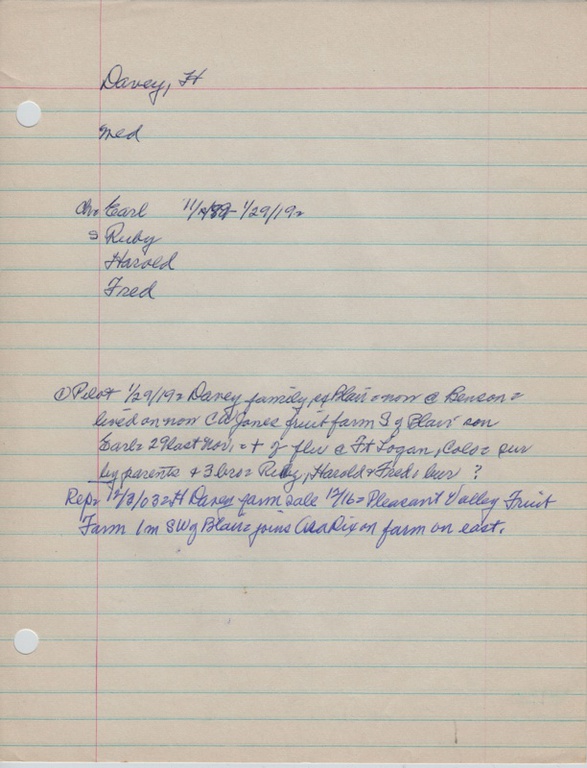 Davey, H
med
ch= Earl 11/ /89- 1/29/19=
s Ruby
Harold
Fred
① Pilot 1/29/19= Davey family of Blair= now @ Benson=
lived on now CW Jones fruit farm S of Blair= son
Earl= 29 last Nov,= + of flu @ Ft Logan, Colo= sur
by parents + 3 bro= Ruby, Harold + Fred= bur ?
Rep= 12/8/03= H Davey farm sale 12/16= Pleasant Valley Fruit
Farm 1m SW of Blair= joins Asa Dixon farm on east.